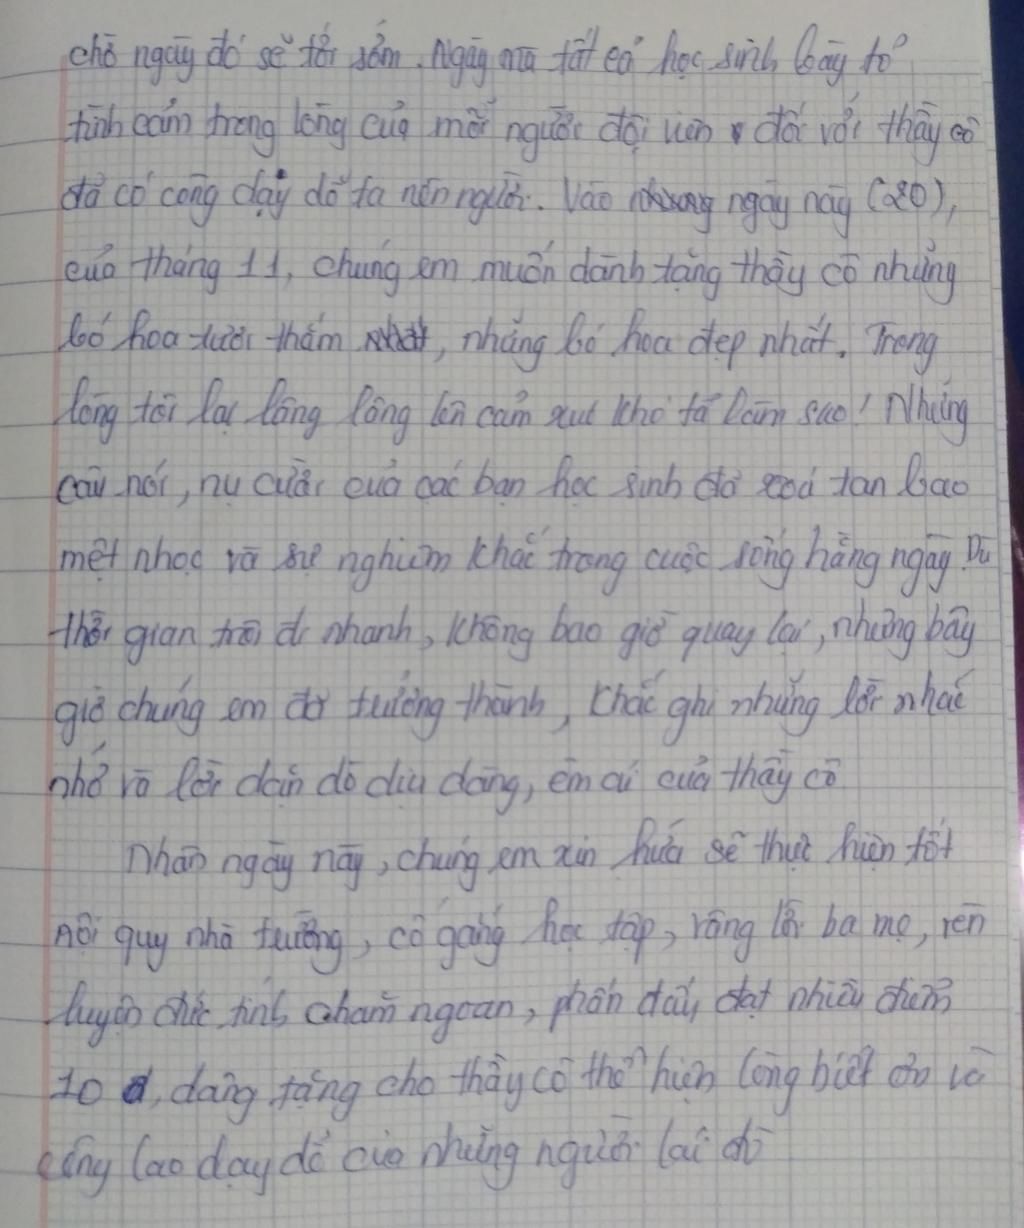 chờ ngày đó sẽ tới sớm. Ngày mà tất cả học sinh bày tỏ
tình cảm trong lòng của mỗi người đội viên đối với thầy cô
đã có công dạy dỗ ta nên người. Vào ngày này (20),
của tháng 11, chúng em muốn dành tặng thầy cô những
bó hoa tươi thắm nhất, những bó hoa đẹp nhất. Trong
lòng tôi lại lâng lâng lên cảm xúc khó tả làm sao! Những
câu nói, nụ cười của các bạn học sinh đã xoá tan bao
mệt nhọc và sự nghiêm khắc trong cuộc sống hằng ngày. Dù
thời gian trôi đi nhanh, không bao giờ quay lại, nhưng bây
giờ chúng em đã trưởng thành, khắc ghi những lời nhắc
nhở và lời dặn dò dịu dàng, êm ái của thầy cô
Nhân ngày này, chúng em xin hứa sẽ thực hiện tốt
nội quy nhà trường, cố gắng học tập, vâng lời ba mẹ, rèn
luyện đức tính chăm ngoan, phấn đấu đạt nhiều điểm
10, dâng tặng cho thầy cô thể hiện lòng biết ơn và
công lao dạy dỗ của những người lái đò